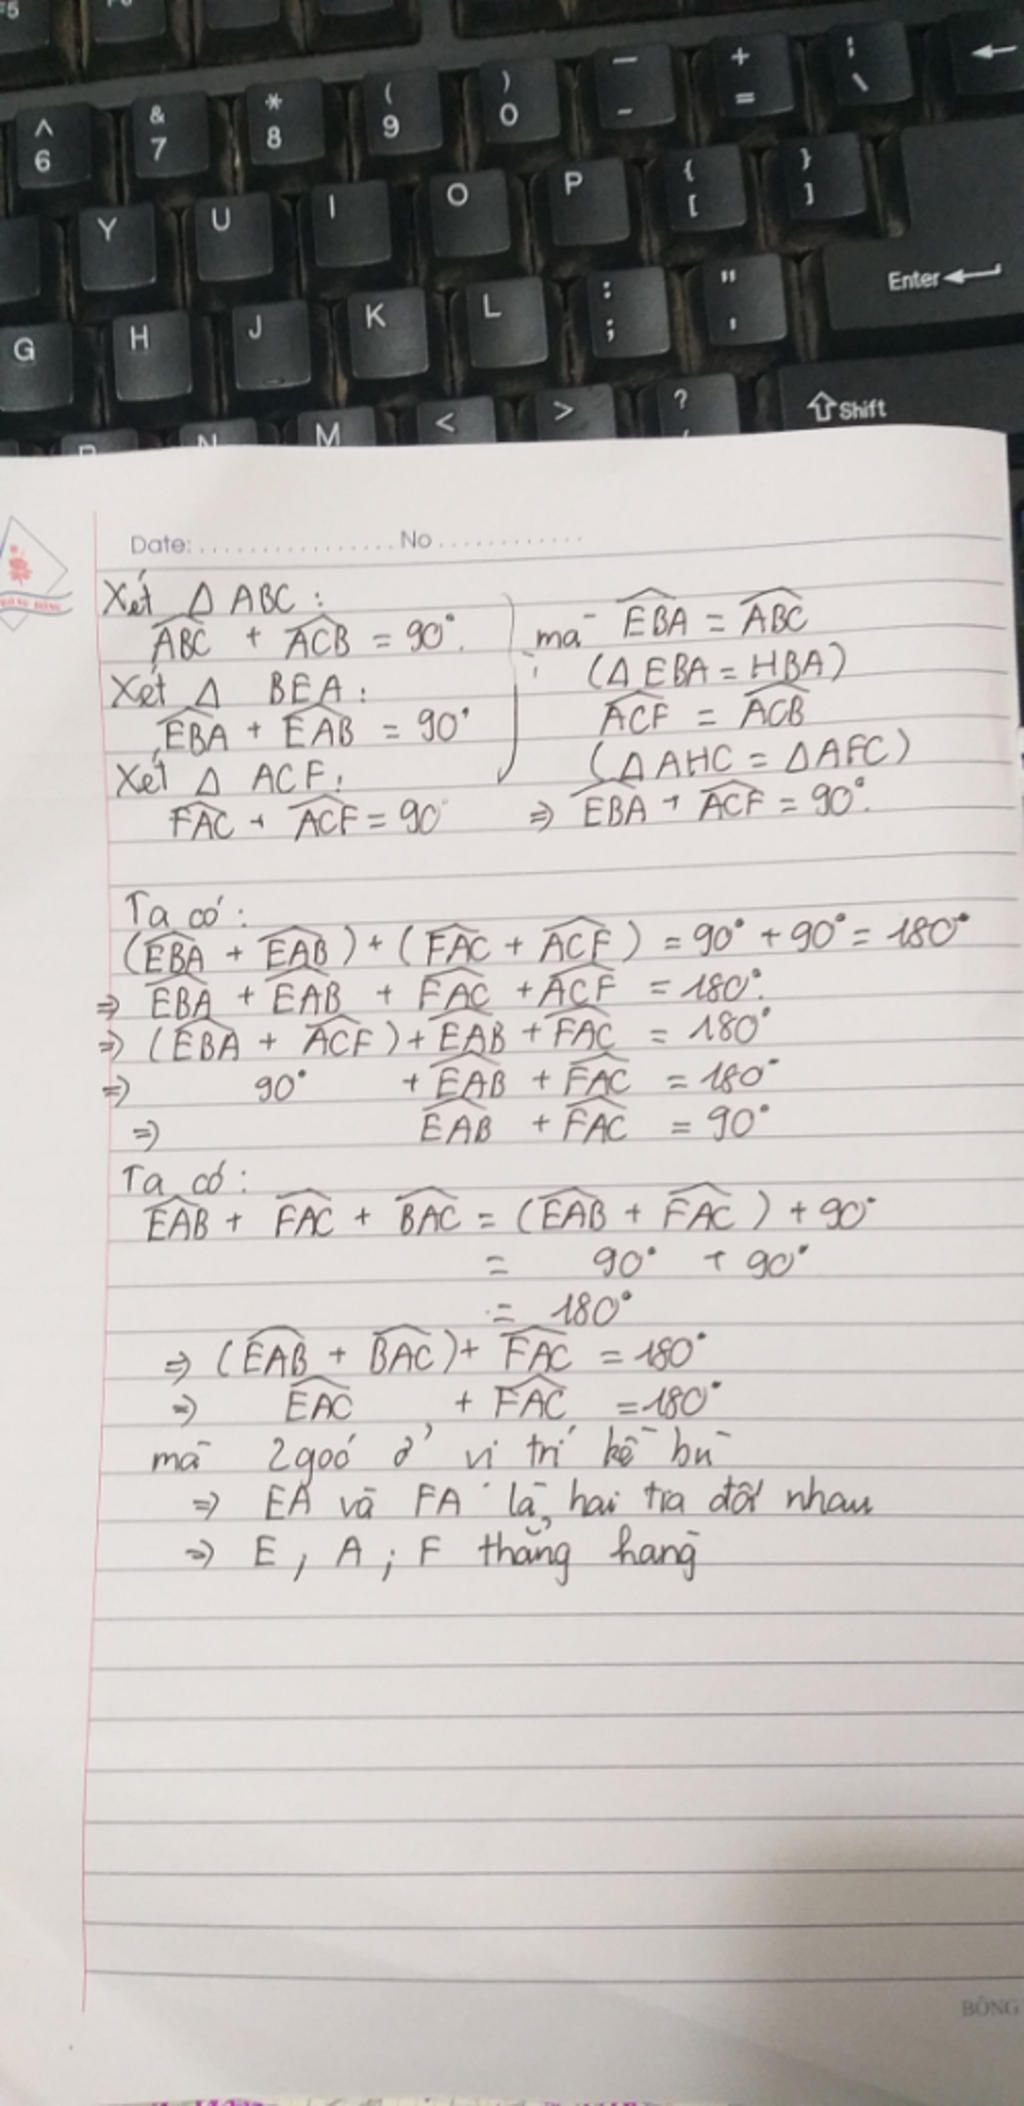 F5
^ 6
& 7
* 8
( 9
) 0
— -
+ =
¦ \
←
Y U I O P { [ } ]
Enter ←
G H J K L : ; " '
N M < > ?
⇧ Shift
Date: ................ No ............
Xét Δ ABC :
\widehat{ABC} + \widehat{ACB} = 90°.
Xét Δ BEA :
\widehat{EBA} + \widehat{EAB} = 90°
Xét Δ ACF :
\widehat{FAC} + \widehat{ACF} = 90
mà \widehat{EBA} = \widehat{ABC}
(Δ EBA = HBA)
\widehat{ACF} = \widehat{ACB}
(Δ AHC = Δ AFC)
=> \widehat{EBA} + \widehat{ACF} = 90°.
Ta có :
(\widehat{EBA} + \widehat{EAB}) + (\widehat{FAC} + \widehat{ACF}) = 90° + 90° = 180°
=> \widehat{EBA} + \widehat{EAB} + \widehat{FAC} + \widehat{ACF} = 180°.
=> (\widehat{EBA} + \widehat{ACF}) + \widehat{EAB} + \widehat{FAC} = 180°
=> 90° + \widehat{EAB} + \widehat{FAC} = 180°
=> \widehat{EAB} + \widehat{FAC} = 90°
Ta có :
\widehat{EAB} + \widehat{FAC} + \widehat{BAC} = (\widehat{EAB} + \widehat{FAC}) + 90°
= 90° + 90°
= 180°
=> (\widehat{EAB} + \widehat{BAC}) + \widehat{FAC} = 180°
=> \widehat{EAC} + \widehat{FAC} = 180°
mà 2 goó ở vị trí kề bù
=> EA và FA là hai tra đối nhau
=> E , A ; F thẳng hàng
BÔNG